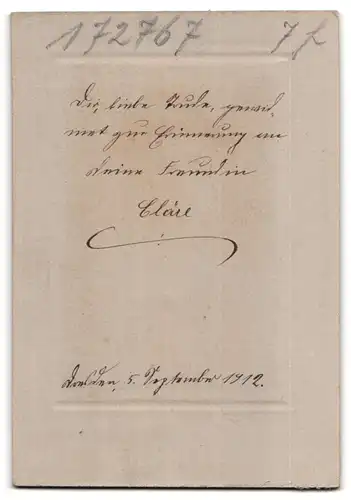 172767 7f
Dir, liebe Trude, gewid-
met zur Erinnerung an
Deine Freundin
Cläre
Dresden, 5. September 1912.